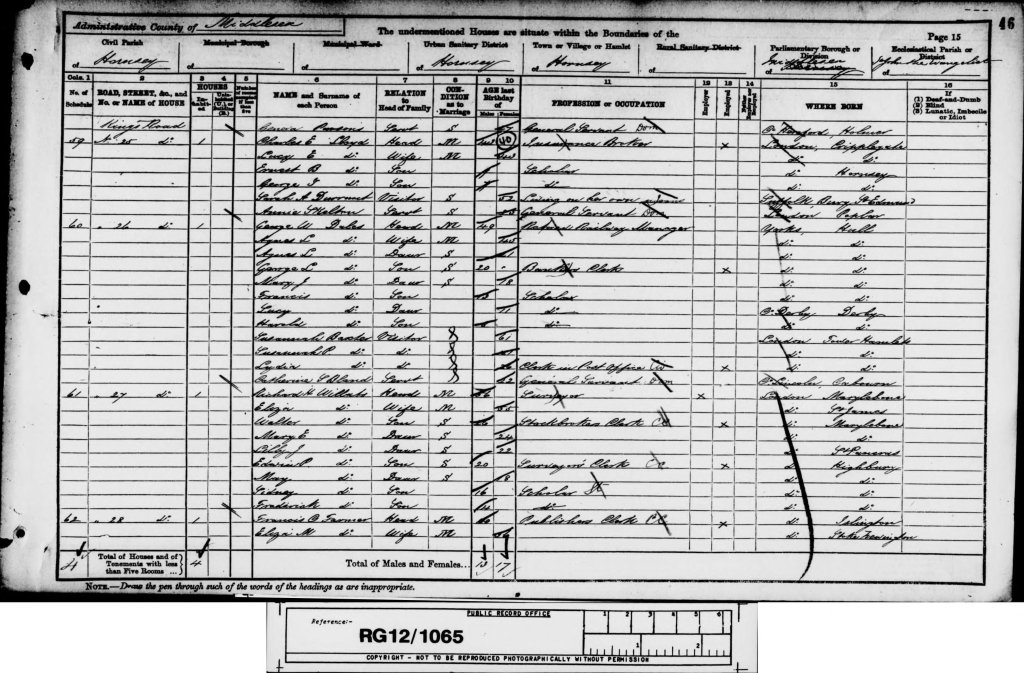 Administrative County of Middlesex
The undermentioned Houses are situate within the Boundaries of the
46
Page 15
Civil Parish
Municipal Borough
Municipal Ward
Urban Sanitary District
Town or Village or Hamlet
Rural Sanitary District
Parliamentary Borough or Division
Ecclesiastical Parish or District
of Hornsey
of
of
of Hornsey
of Hornsey
of
of Middlesex Hornsey
of John the Evangelist
Cols. 1 2 3 4 5 6 7 8 9 10 11 12 13 14 15 16
No. of Schedule
ROAD, STREET, &c., and No. or NAME of HOUSE
HOUSES
NAME and Surname of each Person
RELATION to Head of Family
CONDITION as to Marriage
AGE last Birthday of
Males Females
PROFESSION or OCCUPATION
Employer
Employed
WHERE BORN
If
(1) Deaf-and-Dumb
(2) Blind
(3) Lunatic, Imbecile or Idiot
Kings Road Parsons Servt S General Servant Dom Holmer
59 No 25 do 1 Charles E Lloyd Head M 40 Insurance Broker x London, Cripplegate
Lucy E do Wife M do do
Ernest B do Son Scholar do Hornsey
George do Son do do do
Sarah A Visitor S 52 Living on her own means Suffolk, Bury St Edmunds
Annie Skelton Servt S General Servant Dom London Poplar
60 " 26 do 1 George W Head M 49 Retired Railway Manager Yorks, Hull
Agnes L do Wife M do do
Agnes L do Daur S 21 do do
George L do Son S 20 Bankers Clerk x do do
Mary J do Daur S 18 do do
Francis do Son 13 Scholar do do
Lucy do Daur 11 do Derby
Harold do Son do do do
Susannah Baxter Visitor 61 London Tower Hamlets
Susannah P. do do do do
Lydia do do Clerk in Post Office CS x do do
Catherine Bland Servt 22 General Servant Dom Lincoln,
61 " 27 do 1 Richard H Willats Head M 56 Surveyor x London Marylebone
Eliza do Wife M 55 do St James
Walter do Son S 26 Stockbrokers Clerk CC x do Marylebone
Mary E do Daur S 24 do do
Lilly J do Daur S 22 do St Pancras
Edwin P do Son S 20 Surveyors Clerk CC x do Highbury
May do Daur S 18 do do
Sidney do Son 16 Scholar St do do
Frederick do Son 14 do do do
62 " 28 do 1 Francis C Farmer Head M 60 Publishers Clerk CC x do Islington
Eliza M do Wife M 59 do Stoke Newington
4 Total of Houses and of Tenements with less than Five Rooms ... 4 Total of Males and Females... 13 17
NOTE.—Draw the pen through such of the words of the headings as are inappropriate.
PUBLIC RECORD OFFICE
Reference:-
RG12/1065
1 2 3 4 5 6
1 2
COPYRIGHT - NOT TO BE REPRODUCED PHOTOGRAPHICALLY WITHOUT PERMISSION